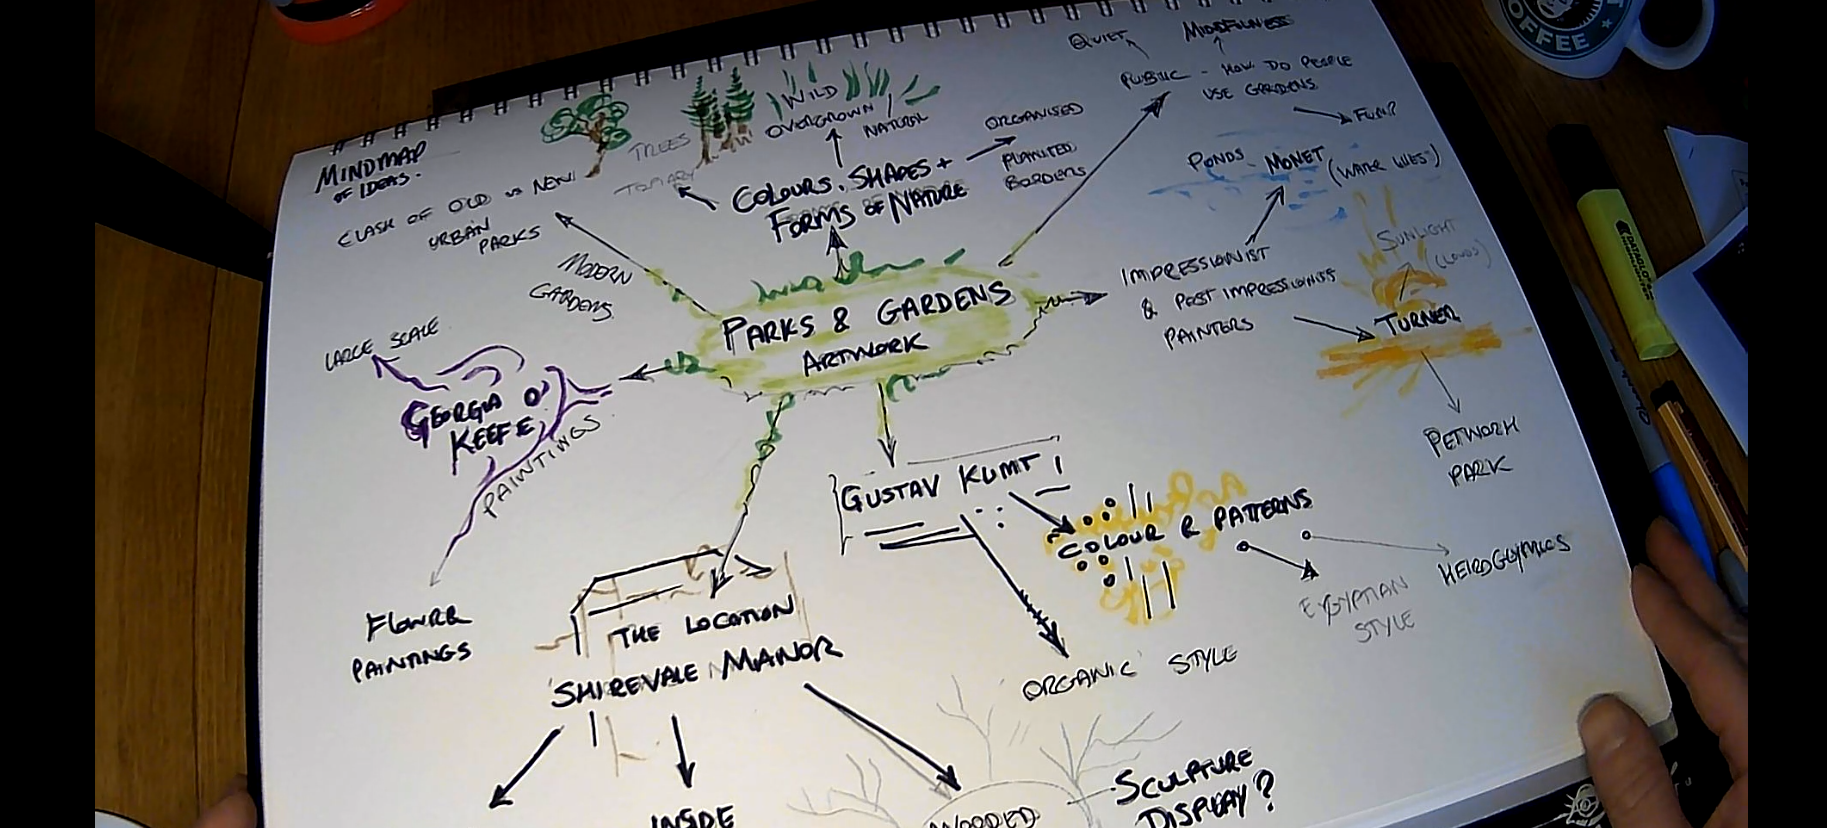 MINDMAP
OF IDEAS.
CLASH OF OLD vs NEW
URBAN
PARKS
MODERN
GARDENS
TREES
TOPIARY
WILD
OVERGROWN
NATURAL
COLOURS, SHAPES +
FORMS OF NATURE
ORGANISED
PLANTED
BORDERS
QUIET
MIDFULNESS
PUBLIC - HOW DO PEOPLE
USE GARDENS
FUN?
PONDS MONET
(WATER LILIES)
IMPRESSIONIST
& POST IMPRESSIONISTS
PAINTERS
SUNLIGHT
(CLOUDS)
TURNER
PETWORH
PARK
PARKS & GARDENS
ARTWORK
LARGE SCALE
GEORGIA O'
KEEFE
PAINTINGS
FLOWER
PAINTINGS
GUSTAV KLIMT
COLOUR & PATTERNS
HEIROGLYMICS
EYGYPTIAN
STYLE
ORGANIC STYLE
THE LOCATION
SHIREVALE MANOR
INSIDE
WOODED
SCULPTURE
DISPLAY?
OFFEE